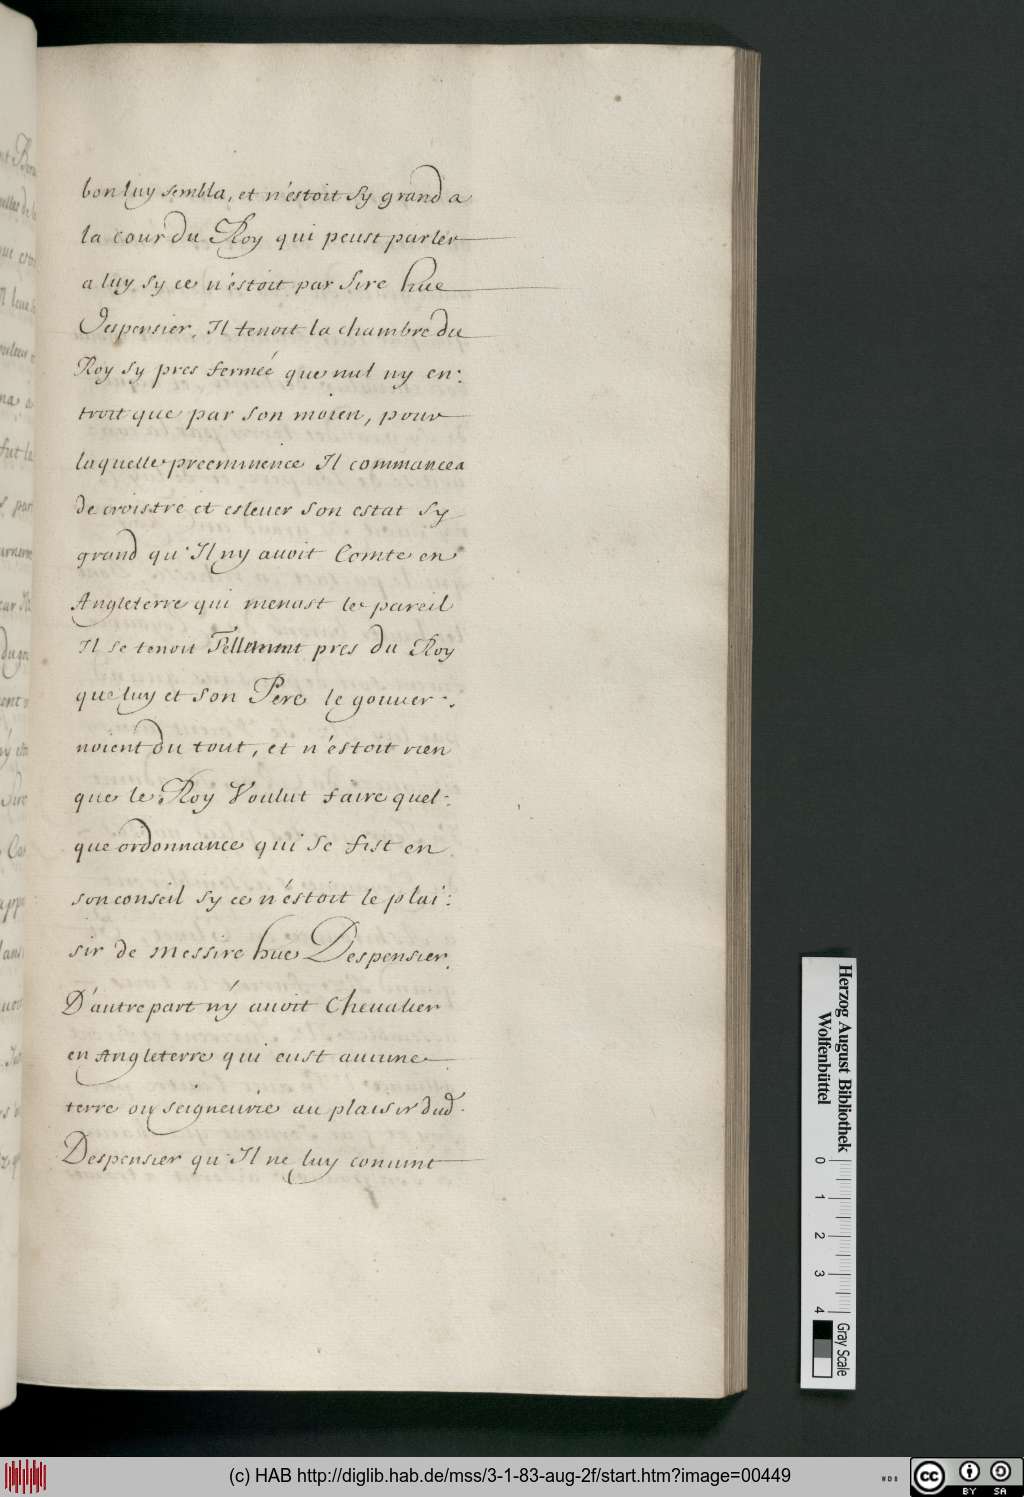 bon luy sembla, et n'estoit sy grand a
la cour du Roy qui peust parler
a luy sy ce n'estoit par Sire hue
Despensier, Il tenoit la chambre du
Roy sy pres fermeé que nul ny en:
troit que par son moien, pour
laquelle preeminence Il commancea
de croistre et esleuer son estat sy
grand qu'Il ny auoit Comte en
Angleterre qui menast le pareil
Il se tenoit Tellement pres du Roy
que luy et son Pere le gouuer-.
noient du tout, et n'estoit rien
que le Roy Voulut faire quel-.
que ordonnance qui se fist en
son conseil sy ce n'éstoit le plai:
sir de Messire hue Despensier.
D'autre part n'y auoit Cheualier
en Angleterre qui eust aucune
terre ou seigneurie au plaisir dud.
Despensier qu'Il ne luy conuint
Herzog August Bibliothek
Wolfenbüttel
0 1 2 3 4
Gray Scale
(c) HAB http://diglib.hab.de/mss/3-1-83-aug-2f/start.htm?image=00449
cc BY SA